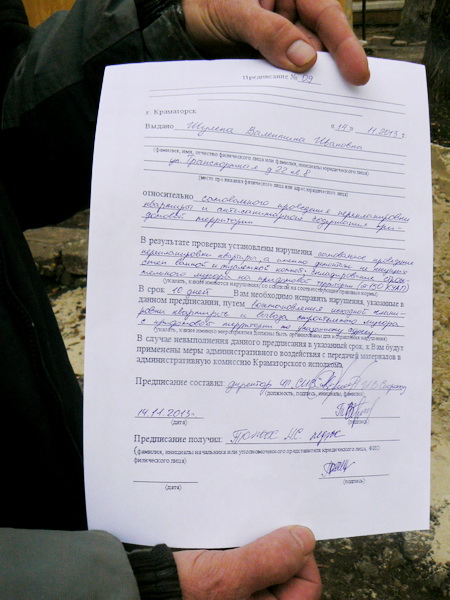 Предписание № 09
г. Краматорск « 14 » 11.2013 г
Выдано Шулека Валентина Ивановна
(фамилия, имя, отчество физического лица или фамилия, инициалы юридического лица)
ул. Транспортная д.22 кв.8
(место проживания физического лица или адрес юридического лица)
относительно самовольного проведения перепланировки
квартиры и антисанитарного содержания при-
домовой территории
В результате проверки установлены нарушения самовольное проведение
перепланировки квартиры, а именно демонтаж не несущих
стен ванной и туалетной комнат,
(указать, какие имеются нарушения со ссылкой на соответствующие правовые нормы)
В срок 10 дней. Вам необходимо исправить нарушения, указанные в
данном предписании, путем восстановления исходной плани-
ровки квартиры и вывоза строительного мусора
с придомовой территории по указанному адресу
(указать, какие именно мероприятия должны быть организованы для устранения нарушения)
В случае невыполнения данного предписания в указанный срок, к Вам будут
применены меры административного воздействия с передачей материалов в
административную комиссию Краматорского исполкома.
Предписание составил директор
(должность, подпись, инициалы, фамилия)
14.11.2013г
(дата) (подпись)
Предписание получил
(фамилия, инициалы начальника или уполномоченного представителя юридического лица, ФИО
физического лица)
(дата) (подпись)